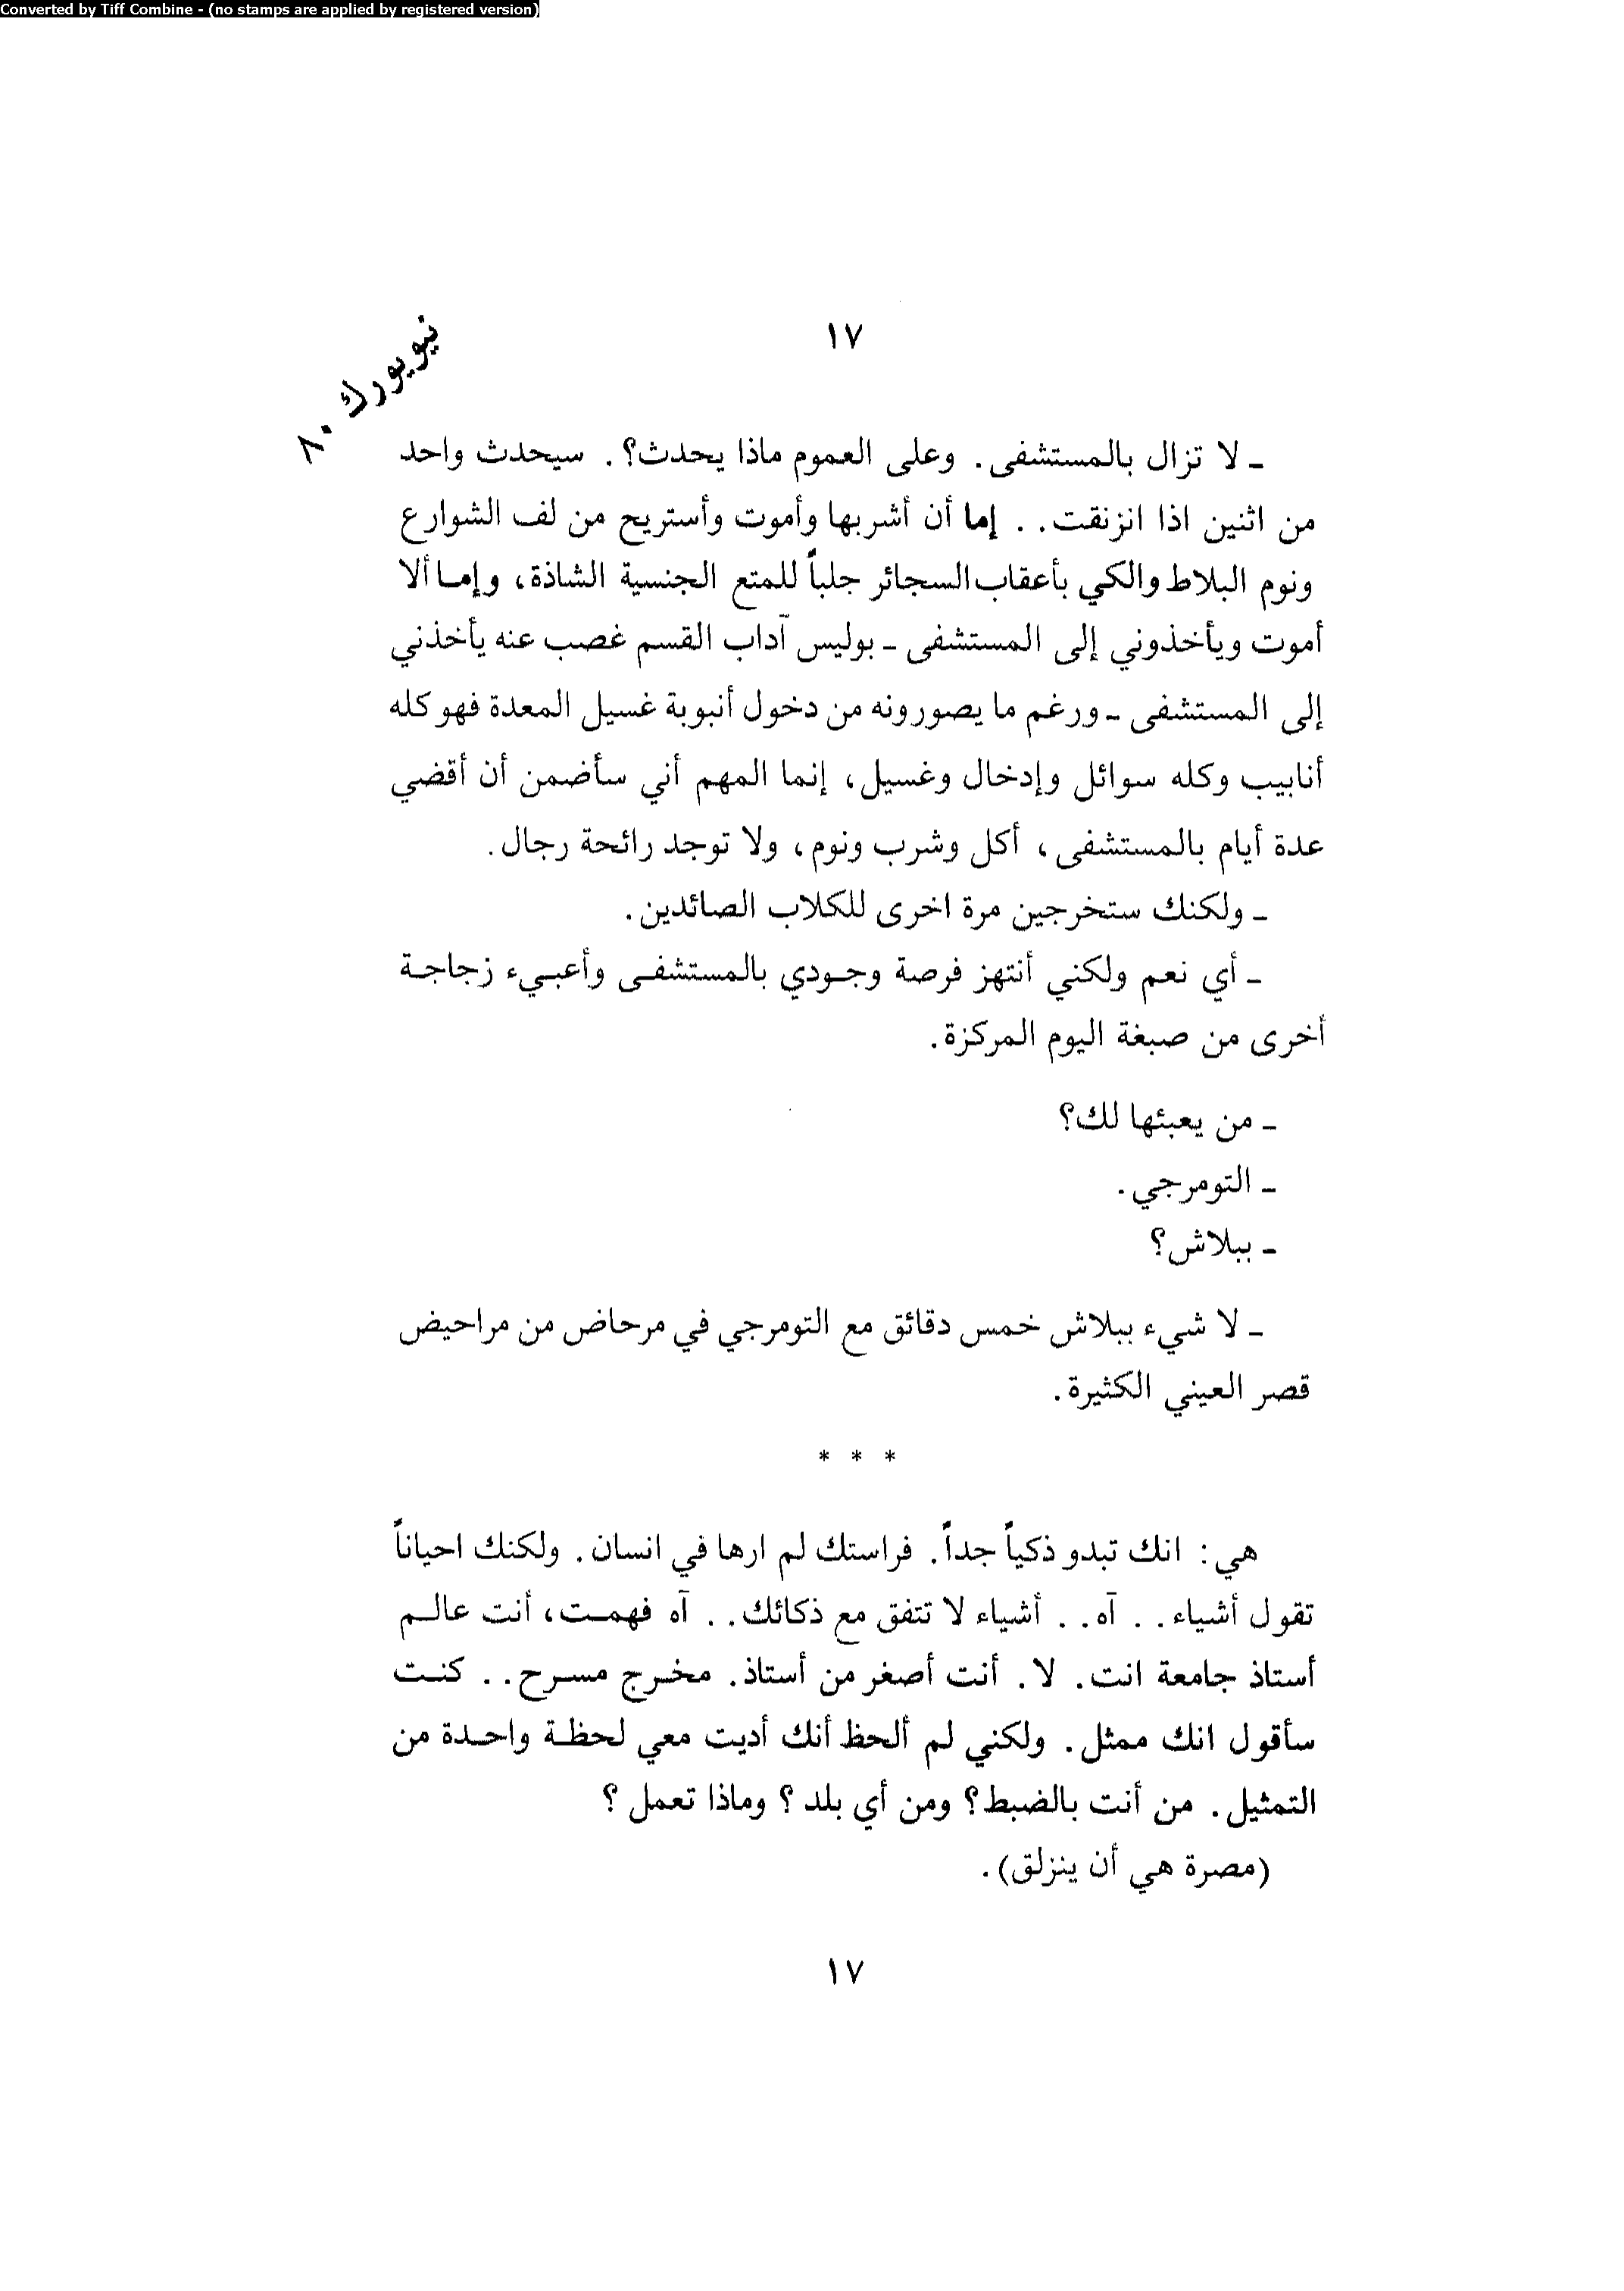 Converted by Tiff Combine - (no stamps are applied by registered version)
١٧
نيويورك ٨٠
ـ لا تزال بالمستشفى. وعلى العموم ماذا يحدث؟. سيحدث واحد
من اثنين اذا انزنقت.. إما أن أشربها وأموت وأستريح من لف الشوارع
ونوم البلاط والكي بأعقاب السجائر جلباً للمتع الجنسية الشاذة، وإما ألا
أموت ويأخذوني إلى المستشفى ـ بوليس آداب القسم غصب عنه يأخذني
إلى المستشفى ـ ورغم ما يصورونه من دخول أنبوبة غسيل المعدة فهو كله
أنابيب وكله سوائل وإدخال وغسيل، إنما المهم أني سأضمن أن أقضي
عدة أيام بالمستشفى، أكل وشرب ونوم، ولا توجد رائحة رجال.
ـ ولكنك ستخرجين مرة اخرى للكلاب الصائدين.
ـ أي نعم ولكني أنتهز فرصة وجودي بالمستشفى وأعبيء زجاجة
أخرى من صبغة اليوم المركزة.
ـ من يعبئها لك؟
ـ التومرجي.
ـ ببلاش؟
ـ لا شيء ببلاش خمس دقائق مع التومرجي في مرحاض من مراحيض
قصر العيني الكثيرة.
* * *
هي: انك تبدو ذكياً جداً. فراستك لم ارها في انسان. ولكنك احياناً
تقول أشياء.. آه.. أشياء لا تتفق مع ذكائك.. آه فهمت، أنت عالم
أستاذ جامعة انت. لا. أنت أصغر من أستاذ. مخرج مسرح.. كنت
سأقول انك ممثل. ولكني لم ألحظ أنك أديت معي لحظة واحدة من
التمثيل. من أنت بالضبط؟ ومن أي بلد؟ وماذا تعمل؟
(مصرة هي أن ينزلق).
١٧